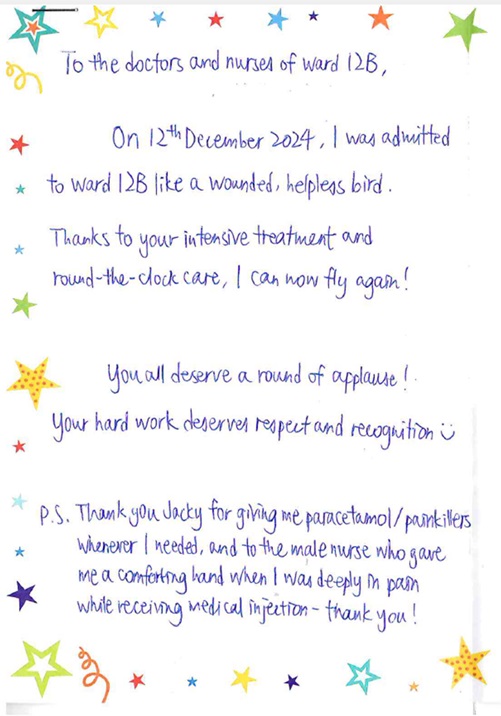 To the doctors and nurses of ward 12B,
On 12th December 2024, I was admitted
to ward 12B like a wounded, helpless bird.
Thanks to your intensive treatment and
round-the-clock care, I can now fly again!
You all deserve a round of applause!
Your hard work deserves respect and recognition
P.S. Thank you Jacky for giving me paracetamol/painkillers
whenever I needed, and to the male nurse who gave
me a comforting hand when I was deeply in pain
while receiving medical injection - thank you!